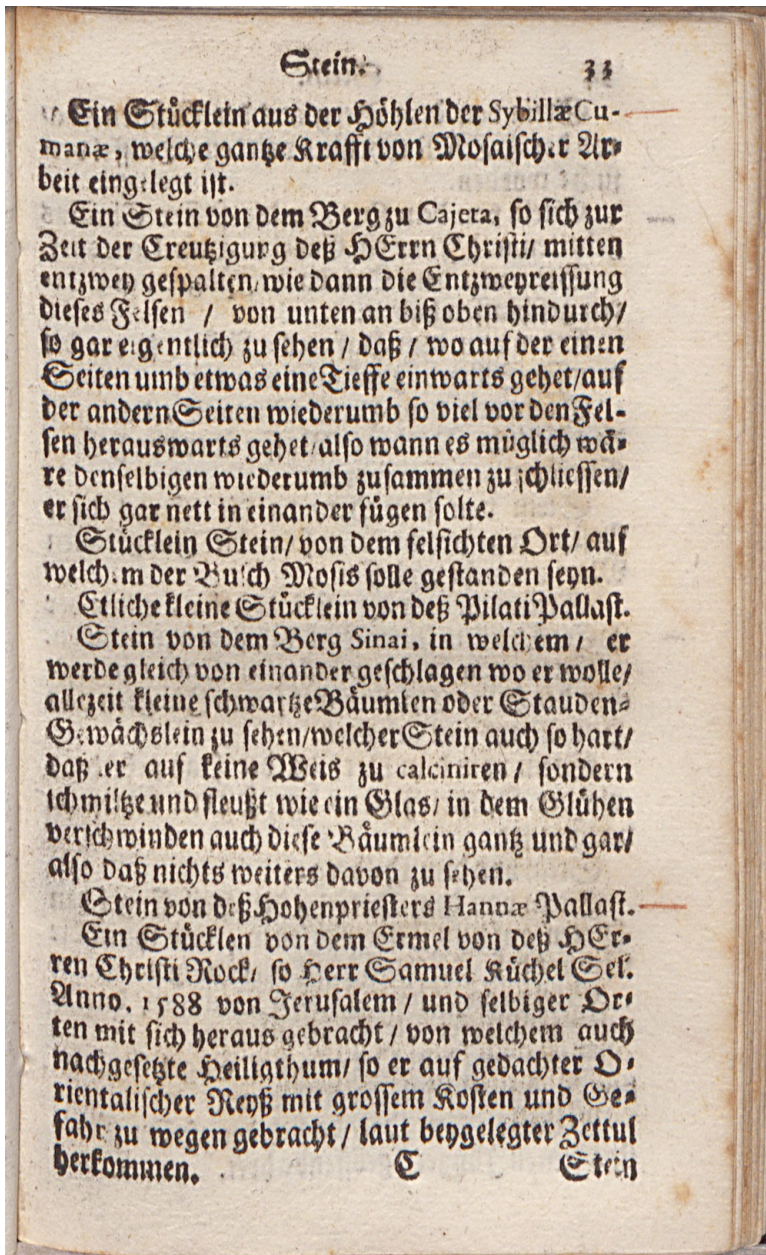 Stein. 33
Ein Stücklein aus der Höhlen der Sybillæ Cu-
manæ, welche gantze Krafft von Mosaischer Ar-
beit eingelegt ist.
Ein Stein von dem Berg zu Cajeta, so sich zur
Zeit der Creutzigung deß HErrn Christi/ mitten
entzwey gespalten/ wie dann die Entzweyreissung
dieses Felsen / von unten an biß oben hindurch/
so gar eigentlich zu sehen / daß / wo auf der einen
Seiten umb etwas eine Tieffe einwarts gehet/ auf
der andern Seiten wiederumb so viel vor den Fel-
sen herauswarts gehet/ also wann es müglich wä-
re denselbigen wiederumb zusammen zu schliessen/
er sich gar nett in einander fügen solte.
Stücklein Stein/ von dem felsichten Ort/ auf
welchem der Busch Mosis solle gestanden seyn.
Etliche kleine Stücklein von deß Pilati Pallast.
Stein von dem Berg Sinai, in welchem / er
werde gleich von einander geschlagen wo er wolle/
allezeit kleine schwartze Bäumlen oder Stauden-
Gewächslein zu sehen/ welcher Stein auch so hart/
daß er auf keine Weis zu calciniren / sondern
schmiltze und fleußt wie ein Glas/ in dem Glühen
verschwinden auch diese Bäumlein gantz und gar/
also daß nichts weiters davon zu sehen.
Stein von deß Hohenpriesters Hannæ Pallast.
Ein Stücklen von dem Ermel von deß HEr-
ren Christi Rock/ so Herr Samuel Küchel Sel.
Anno. 1588 von Jerusalem / und selbiger Or-
ten mit sich heraus gebracht / von welchem auch
nachgesetzte Heiligthum/ so er auf gedachter O-
rientalischer Reyß mit grossem Kosten und Ge-
fahr zu wegen gebracht / laut beygelegter Zettul
herkommen. C Stein